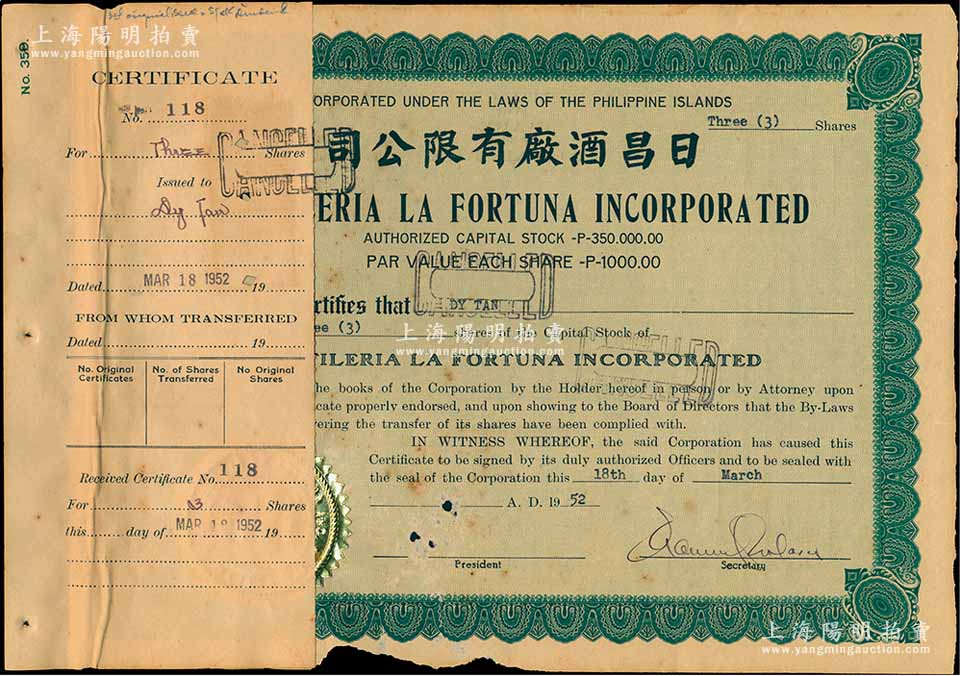 No. 359.
上海陽明拍賣
www.yangmingauction.com
CERTIFICATE
No. 118
For Three Shares
Issued to
Dy Tan
Dated MAR 18 1952 19
FROM WHOM TRANSFERRED
Dated 19
No. Original Certificates
No. of Shares Transferred
No Original Shares
Received Certificate No. 118
For 3 Shares
this day of MAR 18 1952 19
CANCELLED
CANCELLED
上海陽明拍賣
www.yangmingauction.com
ORPORATED UNDER THE LAWS OF THE PHILIPPINE ISLANDS
Three (3) Shares
司公限有廠酒昌日
ERIA LA FORTUNA INCORPORATED
AUTHORIZED CAPITAL STOCK -P-350.000.00
PAR VALUE EACH SHARE -P-1000.00
CANCELLED
CANCELLED
rtifies that DY TAN
ee (3) shares of the Capital Stock of
上海陽明拍賣
www.yangmingauction.com
CANCELLED
CANCELLED
TILERIA LA FORTUNA INCORPORATED
he books of the Corporation by the Holder hereof in person or by Attorney upon
icate properly endorsed, and upon showing to the Board of Directors that the By-Laws
vering the transfer of its shares have been complied with.
IN WITNESS WHEREOF, the said Corporation has caused this
Certificate to be signed by its duly authorized Officers and to be sealed with
the seal of the Corporation this 18th day of March
A. D. 19 52
President
Secretary
上海陽明拍賣
www.yangmingauction.com
上海陽明拍賣
www.yangmingauction.com